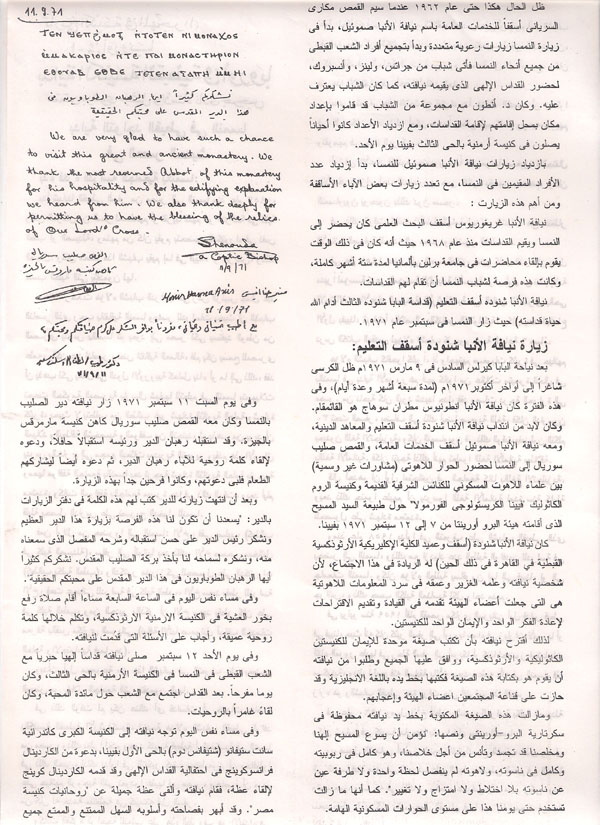 ظل الحال هكذا حتى عام ١٩٦٢ عندما سيم القمص مكارى
السريانى أسقفاً للخدمات العامة باسم نيافة الأنبا صموئيل، بدأ فى
زيارة النمسا زيارات رعوية متعددة وبدأ بتجميع أفراد الشعب القبطى
من جميع أنحاء النمسا فأتى شباب من جراتس، ولينز، وأنسبروك،
لحضور القداس الإلهى الذى يقيمه نيافته، كما كان الشباب يعترف
عليه. وكان د. أنطون مع مجموعة من الشباب قد قاموا بإعداد
مكان بمحل إقامتهم لإقامة القداسات، ومع ازدياد الأعداد كانوا أحياناً
يصلون فى كنيسة أرمنية بالحى الثالث بفيينا يوم الأحد.
بازدياد زيارات نيافة الأنبا صموئيل للنمسا، بدأ إزدياد عدد
الأفراد المقيمين فى النمسا، مع تعدد زيارات بعض الآباء الأساقفة
ومن أهم هذه الزيارت :
نيافة الأنبا غريغوريوس أسقف البحث العلمى كان يحضر إلى
النمسا ويقيم القداسات منذ عام ١٩٦٨ حيث أنه كان فى ذلك الوقت
يقوم بإلقاء محاضرات فى جامعة برلين بألمانيا لمدة ستة أشهر كاملة،
وكانت هذه فرصة لشباب النمسا أن تقام لهم القداسات.
نيافة الأنبا شنوده أسقف التعليم (قداسة البابا شنوده الثالث أدام الله
حياة قداسته) حيث زار النمسا فى سبتمبر عام ١٩٧١.
زيارة نيافة الأنبا شنودة أسقف التعليم:
بعد نياحة البابا كيرلس السادس فى ٩ مارس ١٩٧١م ظل الكرسى
شاغراً إلى أواخر أكتوبر١٩٧١م (لمدة سبعة أشهر وعدة أيام)، وفى
هذه الفترة كان نيافة الأنبا أنطونيوس مطران سوهاج هو القائمقام.
وكان لابد من انتداب نيافة الأنبا شنودة أسقف التعليم والمعاهد الدينية،
ومعه نيافة الأنبا صموئيل أسقف الخدمات العامة، والقمص صليب
سوريال إلى النمسا لحضور الحوار اللاهوتى (مشاورات غير رسمية)
بين علماء اللاهوت المسكونى للكنائس الشرقية القديمة وكنيسة الروم
الكاثوليك "فيينا الكريستولوجى الفورمولا" حول طبيعة السيد المسيح
الذى أقامته هيئة البرو أورينتا من ٧ إلى ١٢ سبتمبر ١٩٧١ بفيينا.
كان نيافة الأنبا شنودة (أسقف وعميد الكلية الإكليريكية الأرثوذكسية
القبطية فى القاهرة فى ذلك الحين) له الريادة فى هذا الاجتماع، لأن
شخصية نيافته وعلمه الغزير وعمقه فى سرد المعلومات اللاهوتية
هى التى جعلت أعضاء الهيئة تقدمه في القيادة وتقديم الاقتراحات
لإعادة الفكر الواحد والإيمان الواحد للكنيستين.
لذلك أقترح نيافته بأن تكتب صيغة موحدة للإيمان للكنيستين
الكاثوليكية والأرثوذكسية، ووافق عليها الجميع وطلبوا من نيافته
أن يقوم هو بكتابة هذه الصيغة فكتبها بخط يده باللغة الانجليزية وقد
حازت على قناعة المجتمعين اعضاء الهيئة وإعجابهم.
ومازالت هذه الصيغة المكتوبة بخط يد نيافته محفوظة فى
سكرتارية البرو-أورينتى ونصها: "نؤمن أن يسوع المسيح إلهنا
ومخلصنا قد تجسد وتأنس من أجل خلاصنا، وهو كامل فى ربوبيته
وكامل فى ناسوته، ولاهوته لم ينفصل لحظة واحدة ولا طرفة عين
عن ناسوته بلا اختلاط ولا امتزاج ولا تغيير". كما أنها ما زالت
تستخدم حتى يومنا هذا على مستوى الحوارات المسكونية الهامة.
11.9.71
نشكركم كثيراً أيها الرهبان الطوباويون فى
هذا الدير المقدس على محبتكم الحقيقية
We are very glad to have such a chance
to visit this great and ancient monastery. We
thank the most reverend Abbot of this monastery
for his hospitality and for the edifying explanation
we heard from him. We also thank deeply for
permitting us to have the blessing of the relics
of Our Lord's Cross.
Shenouda
a Coptic Bishop
11/9/71
القمص صليب سوريال
11/9/71
وفى يوم السبت ١١ سبتمبر ١٩٧١ زار نيافته دير الصليب
بالنمسا وكان معه القمص صليب سوريال كاهن كنيسة مارمرقس
بالجيزة. وقد استقبله رهبان الدير ورئيسه استقبالاً حافلاً، ودعوه
لإلقاء كلمة روحية للآباء رهبان الدير، ثم دعوه أيضاً ليشاركهم
الطعام فلبى دعوتهم، وكانوا فرحين جداً بهذه الزيارة.
وبعد أن انتهت زيارته للدير كتب لهم هذه الكلمة فى دفتر الزيارات
بالدير: "يسعدنا أن تكون لنا هذه الفرصة بزيارة هذا الدير العظيم
ونشكر رئيس الدير على حسن استقباله وشرحه المفصل الذى سمعناه
منه، ونشكره لسماحه لنا بأخذ بركة الصليب المقدس. نشكركم كثيراً
أيها الرهبان الطوباويون فى هذا الدير المقدس على محبتكم الحقيقية".
وفى مساء نفس اليوم فى الساعة السابعة مساءاً أقام صلاة رفع
بخور العشية فى الكنيسة الارمنية الارثوذكسية، وتكلم خلالها كلمة
روحية عميقة، وأجاب على الأسئلة التى قدمت لنيافته.
وفى يوم الأحد ١٢ سبتمبر صلى نيافته قداساً إلهيا حبرياً مع
الشعب القبطى فى النمسا فى الكنيسة الأرمنية بالحى الثالث، وكان
يوما مفرحاً. بعد القداس اجتمع مع الشعب حول مائدة المحبة، وكان
لقاءً غامراً بالروحيات.
وفى مساء نفس اليوم توجه نيافته إلى الكنيسة الكبرى كاتدرائية
سانت ستيفانو (شتيفانس دوم) بالحى الأول بفيينا، بدعوة من الكاردينال
فرانسوكوينج فى احتفالية القداس الإلهى وقد قدمه الكاردينال كوينج
لإلقاء عظة، فقام نيافته وألقى عظة جميلة عن "روحانيات كنيسة
مصر". وقد أبهر بفصاحته وأسلوبه السهل الممتنع والممتع جميع